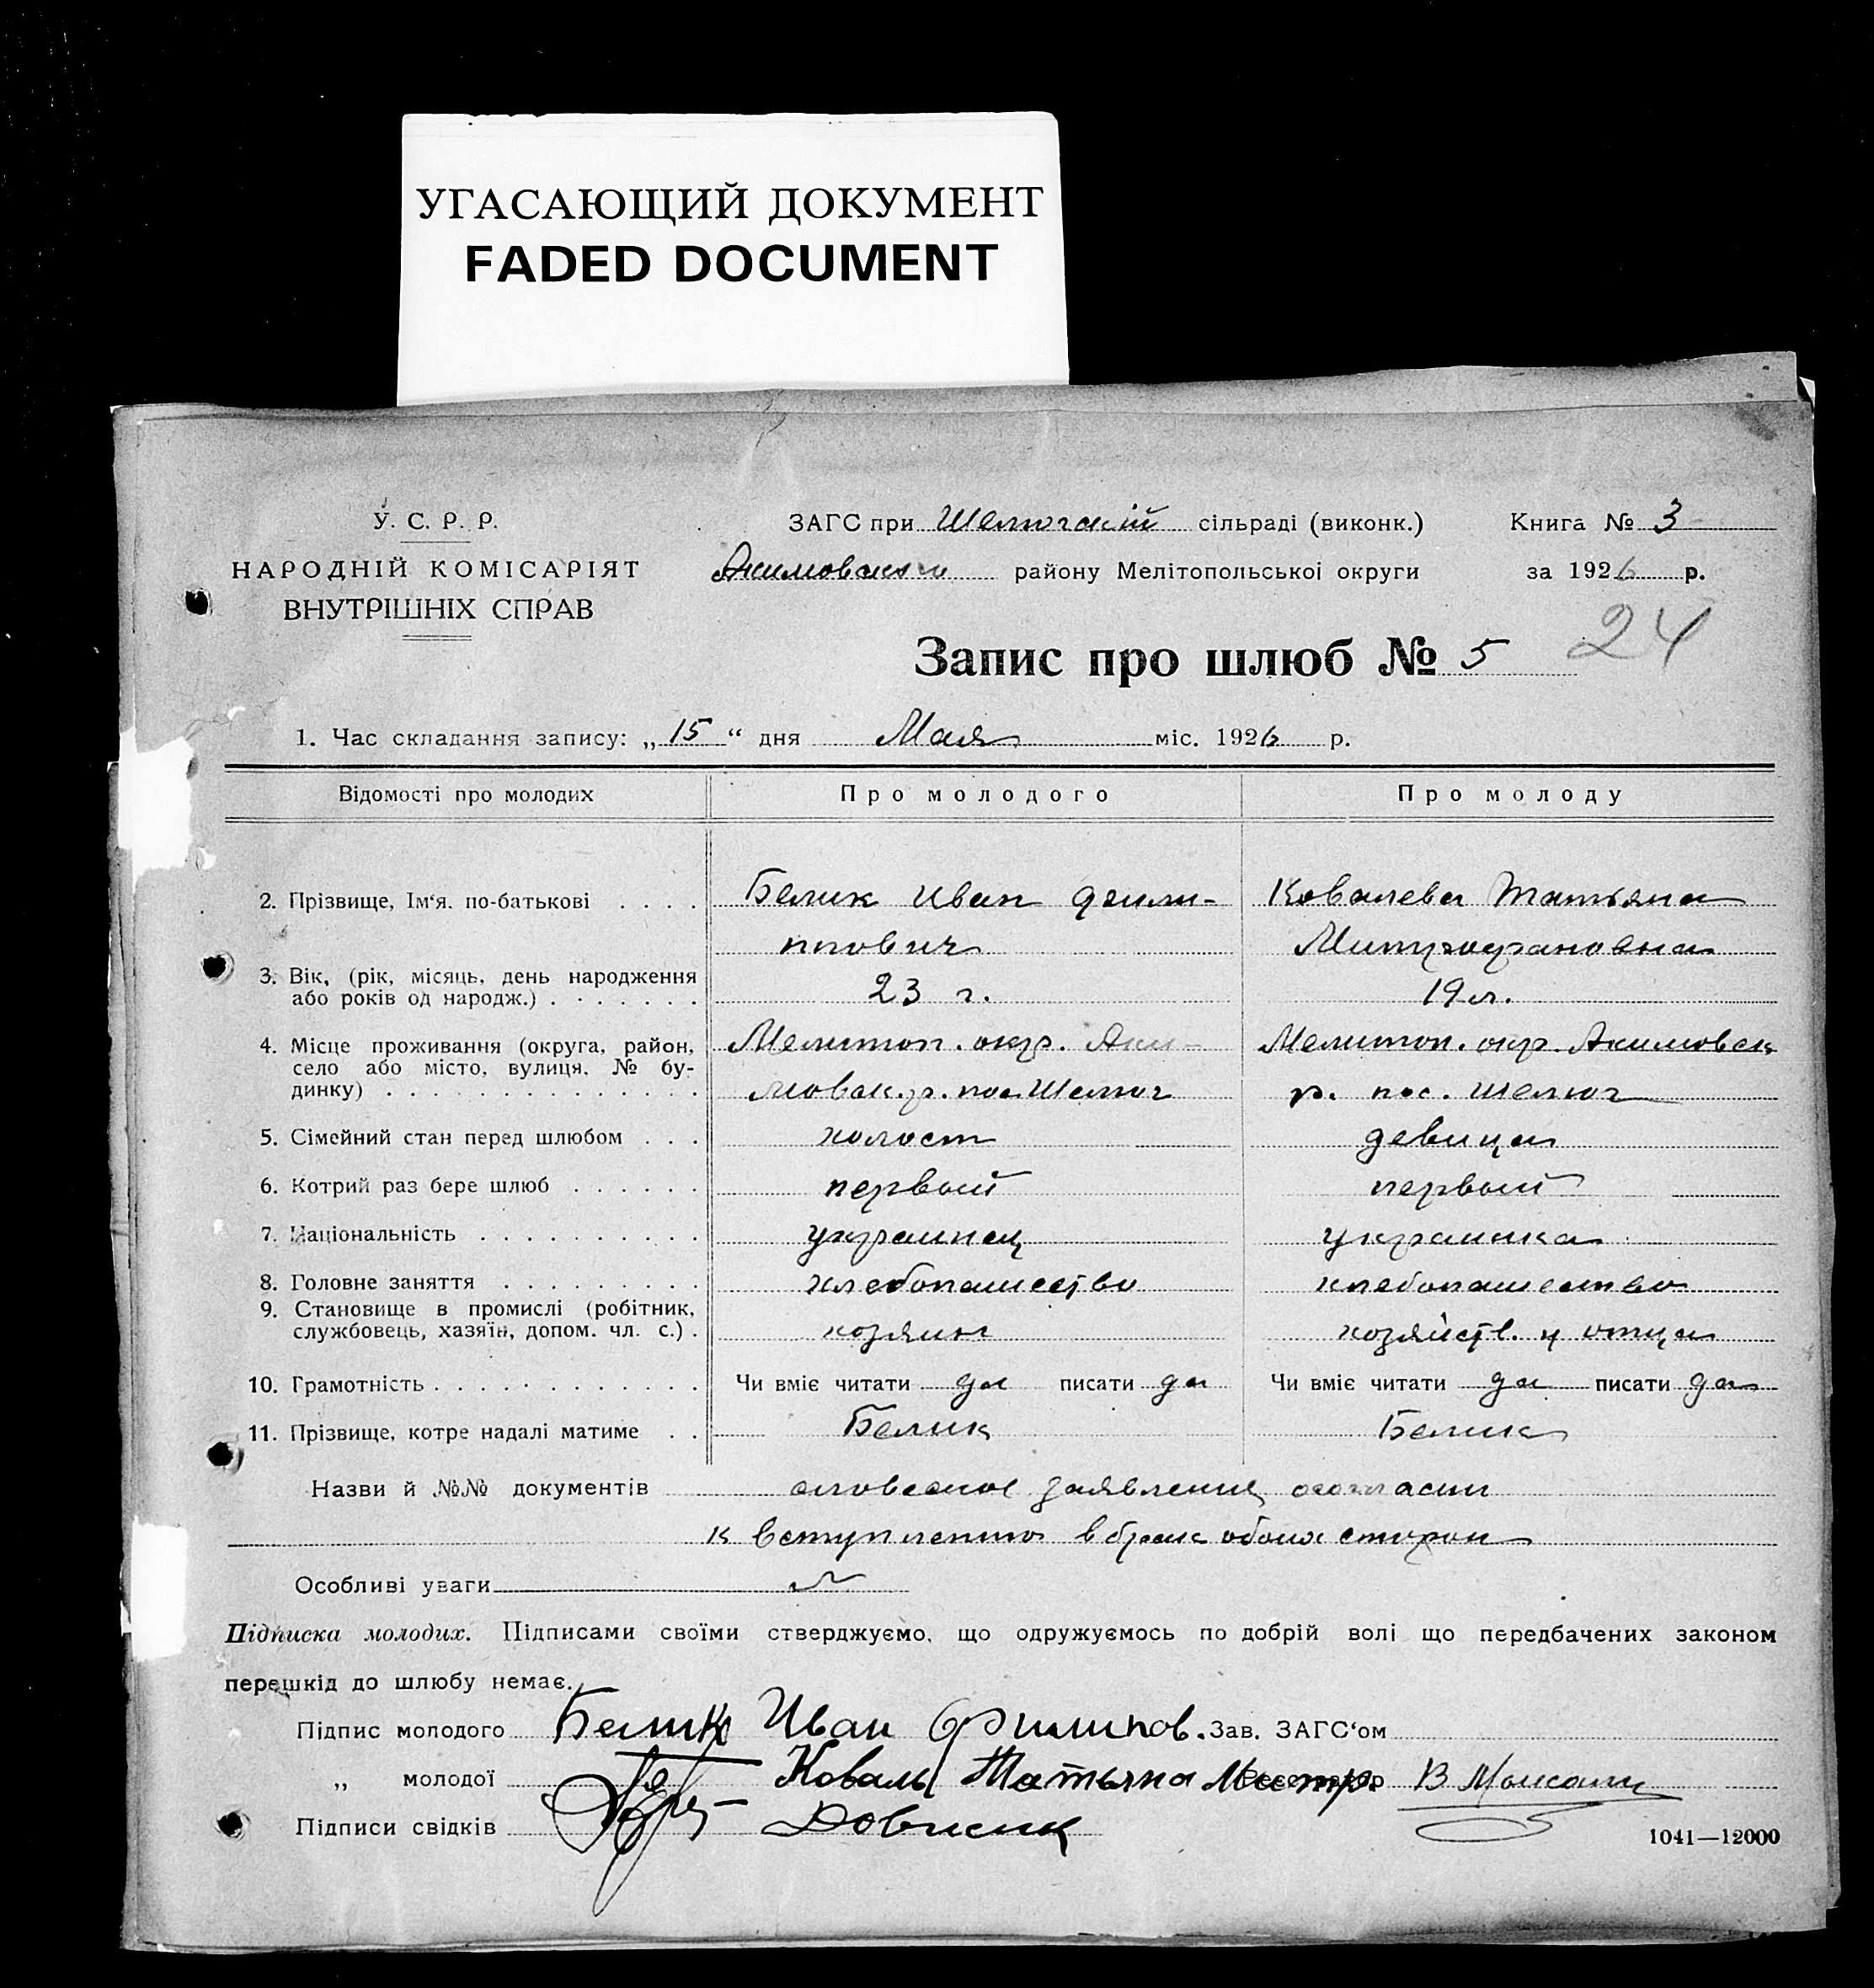 УГАСАЮЩИЙ ДОКУМЕНТ
FADED DOCUMENT
У. С. Р. Р.
НАРОДНІЙ КОМІСАРІЯТ
ВНУТРІШНІХ СПРАВ
ЗАГС при Шелюгскій сільраді (виконк.)
Акимовского району Мелітопольської округи
Книга № 3
за 1926 р.
24
Запис про шлюб № 5
1. Час складання запису: „15“ дня Мая міс. 1926 р.
Відомості про молодих Про молодого Про молоду
2. Прізвище, Ім‘я. по-батькові Белик Иван Фили- Ковалева Татьяна
ппович Митрофановна
3. Вік, (рік, місяць, день народження
або років од народж.) 23 г. 19 л.
4. Місце проживання (округа, район, Мелитоп. окр. Аки- Мелитоп. окр. Акимовск
село або місто, вулиця, № бу-
динку) мовск. р. пос Шелюг р. пос. Шелюг
5. Сімейний стан перед шлюбом холост девица
6. Котрий раз бере шлюб первый первый
7. Національність украинец украинка
8. Головне заняття хлебопашество хлебопашество
9. Становище в промислі (робітник,
службовець, хазяїн, допом. чл. с.) хозяин хозяйств. у отца
10. Грамотність Чи вміє читати да писати да Чи вміє читати да писати да
11. Прізвище, котре надалі матиме Белик Белик
Назви й №№ документів словесное заявления
к вступлению в брак обоих сторон
Особливі уваги
Підписка молодих. Підписами своїми стверджуємо, що одружуємось по добрій волі що передбачених законом
перешкід до шлюбу немає.
Підпис молодого Белик Иван Филипов. Зав. ЗАГС‘ом
„ молодої Коваль Татьяна Митр. В
Підписи свідків
1041—12000